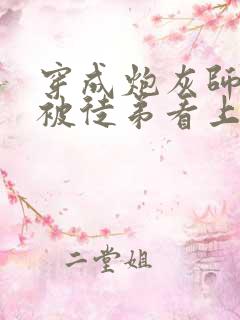 穿成炮灰師
被徒弟看上
二堂姐